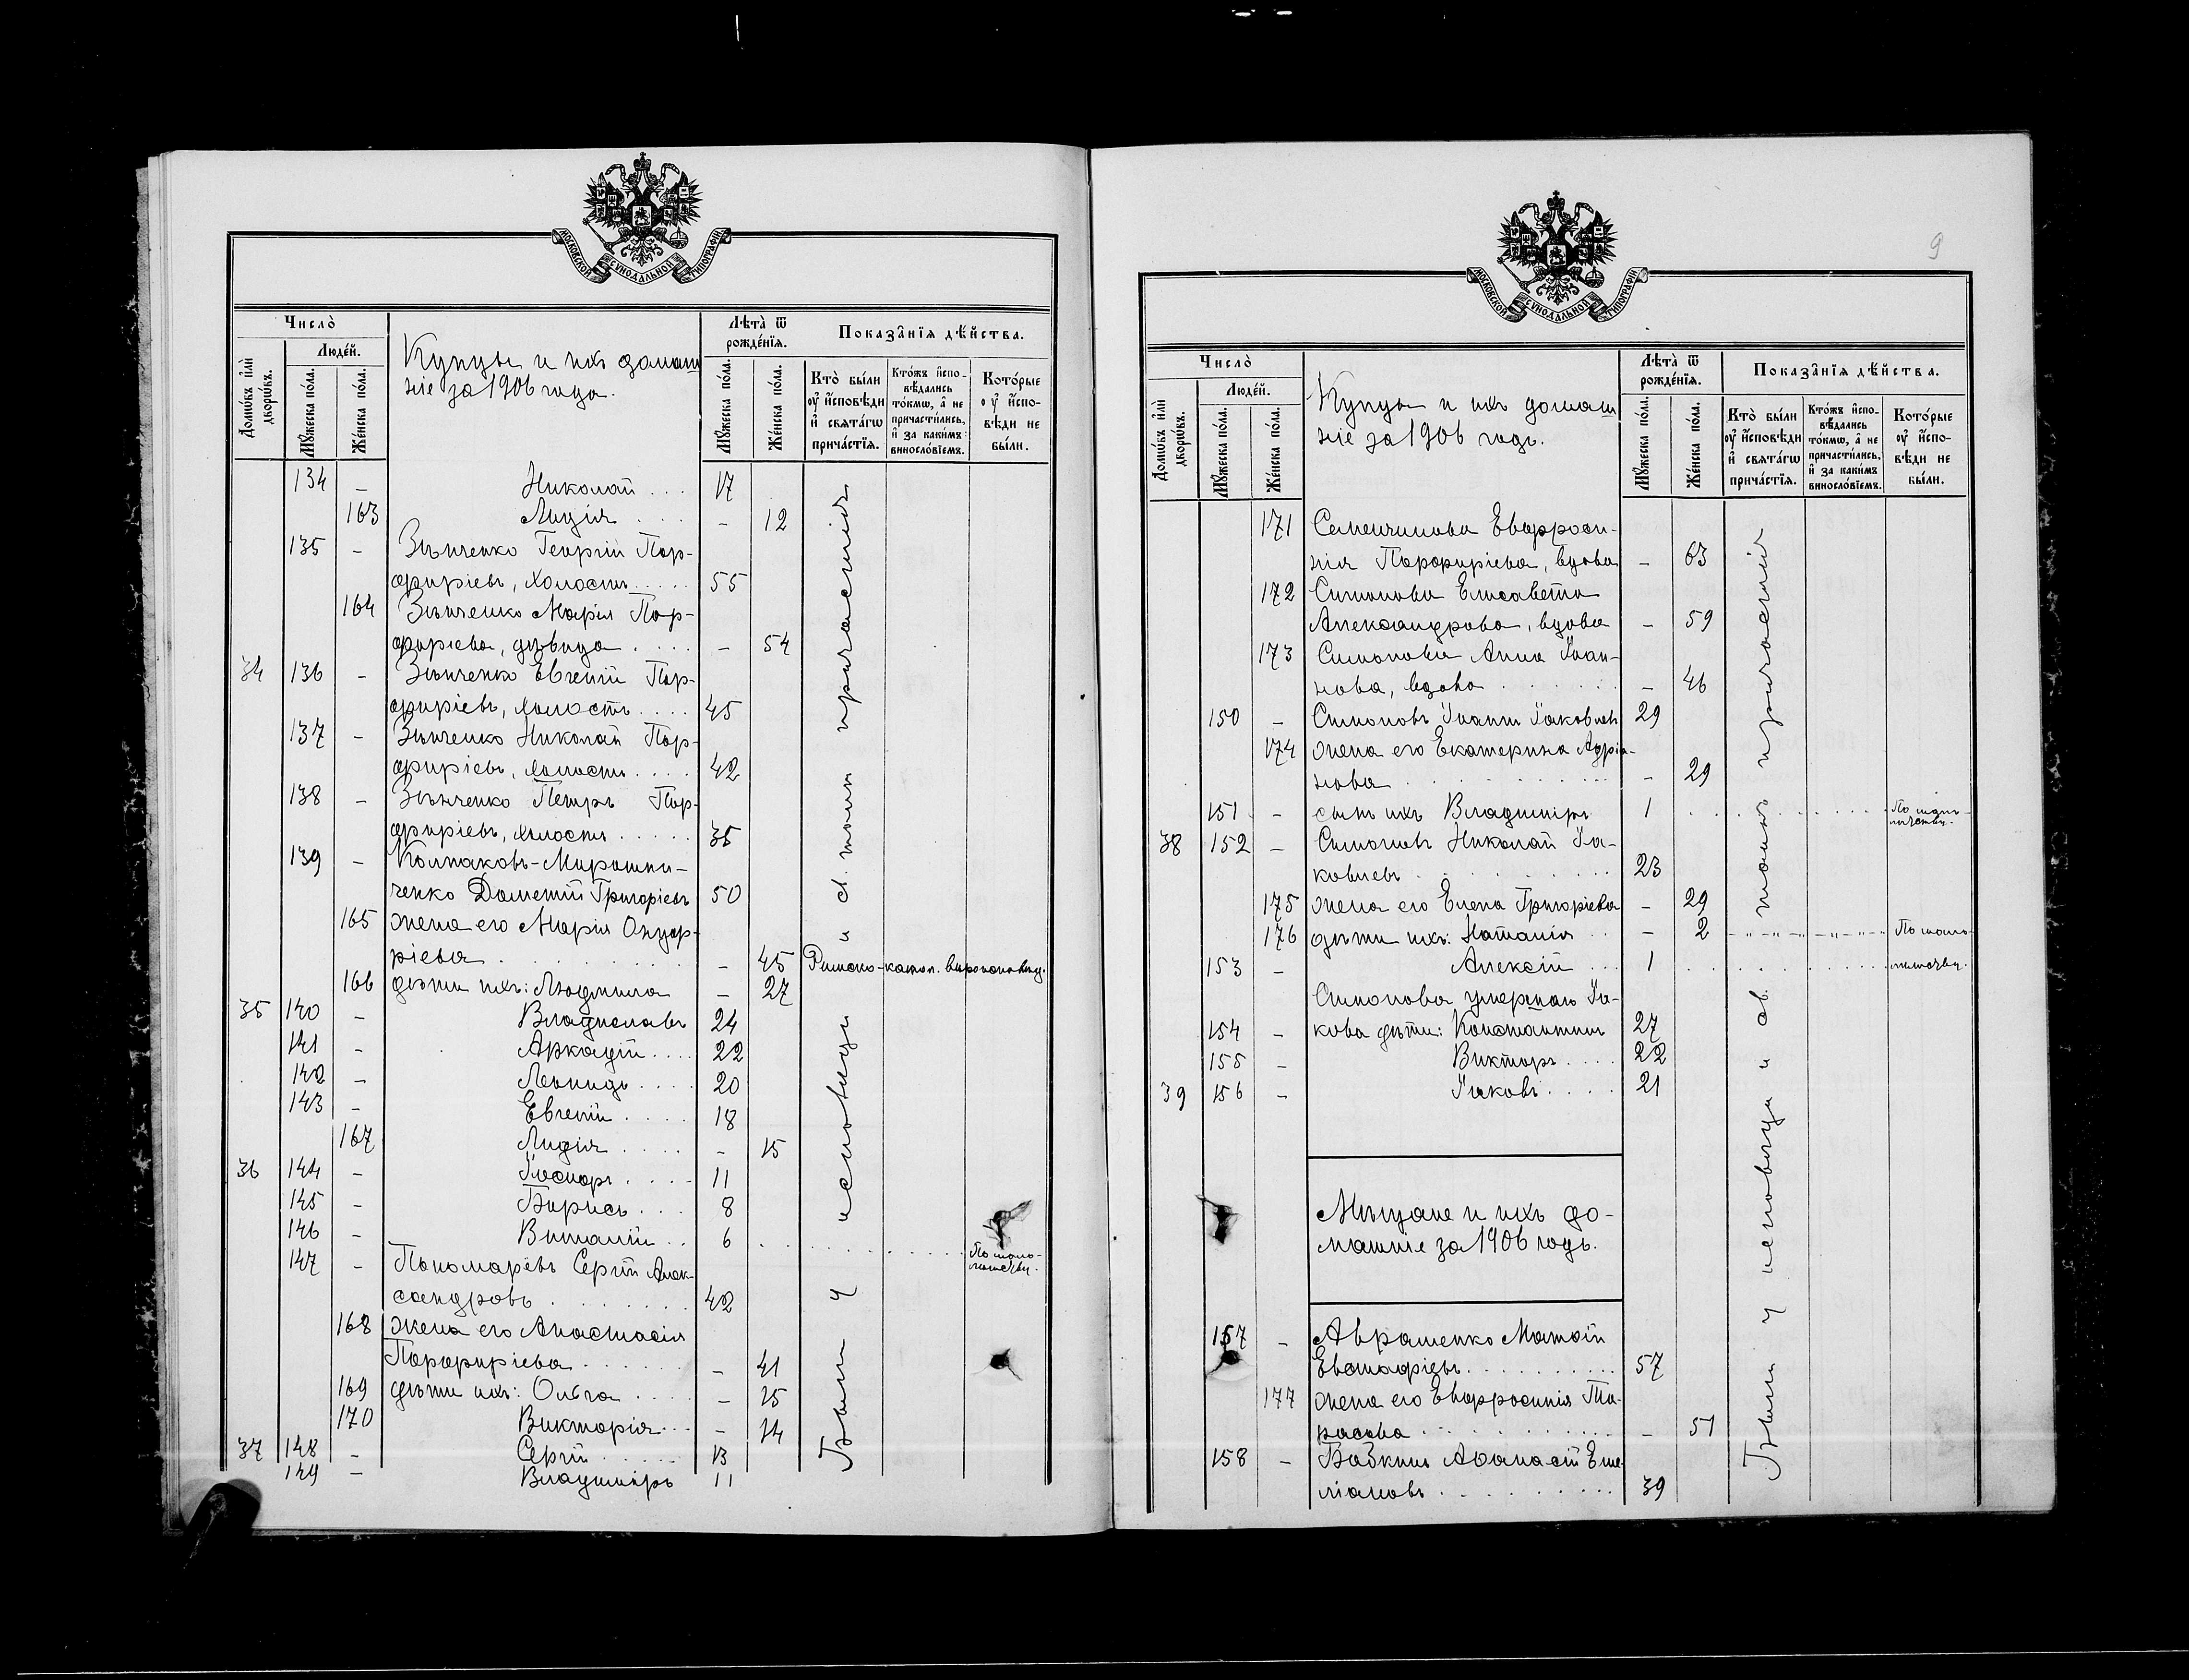 МОСКОВСКОЙ СѴНОДАЛЬНОЙ ТИПОГРАФІИ
Число̀
Люде́й.
Домѡ́въ и҆лѝ дворѡ́въ.
Мꙋ́жеска по́ла.
Же́нска по́ла.
Купцы и ихъ домаш
ніе за 1906 года.
Лѣта̀ ѿ рожде́нїѧ.
Мꙋ́жеска по́ла.
Же́нска по́ла.
Показа̂нїѧ дѣ́йства.
Кто̀ бы́ли оу҆ и҆́сповѣди и҆ свѧта́гѡ прича́стїѧ.
Кто́жъ и҆спо-вѣ́дались то́кмѡ, а҆ не причасти́лись, и҆ за каки́мъ виносло́вїемъ.
Кото́рые оу҆ и҆спо-вѣди не бы́ли.
134 - Николай . . . 17
163 Лидія . . . - 12
135 - Зѣнченко Георгій Пор-
фиріевъ, холостъ . . . . 55
164 Зѣнченко Марія Пор-
фиріева, дѣвица . . . . - 54
34 136 - Зѣнченко Евгеній Пор-
фиріевъ, холостъ . . . . 45
137 - Зѣнченко Николай Пор-
фиріевъ, холостъ . . . . 42
138 - Зѣнченко Петръ Пор-
фиріевъ, холостъ . . . . . 35
139 - Колпаковъ-Мирошни-
ченко Дометій Григоріевъ 50
165 жена его Марія Онуф-
ріева . . . . . . . - 45 Римско-катол. вѣроисповѣд.
166 дѣти ихъ: Людмила - 27
35 140 - Владиславъ 24
141 - Аркадій . . . . 22
142 - Леонидъ . . . . 20
143 - Евгеній . . . . 18
167 Лидія . . . . - 15
36 144 - . . . . 11
145 - Борисъ . . . 8
146 - Виталій . . 6 . . . . . . . . По мало-
лѣтству.
147 - Пономаревъ Сергій Алек-
сандровъ . . . . . . . 42
168 жена его Анастасія
Порфиріева . . . . . . - 41
169 дѣти ихъ: Ольга . . . . - 15
170 Викторія . . . - 14
37 148 - Сергій . . . . . 13
149 - Владиміръ 11
Были у исповѣди и св. таинъ причастія
9
МОСКОВСКОЙ СѴНОДАЛЬНОЙ ТИПОГРАФІИ
Число̀
Люде́й.
Домѡ́въ и҆лѝ дворѡ́въ.
Мꙋ́жеска по́ла.
Же́нска по́ла.
Купцы и ихъ домаш
ніе за 1906 годъ.
Лѣта̀ ѿ рожде́нїѧ.
Мꙋ́жеска по́ла.
Же́нска по́ла.
Показа̂нїѧ дѣ́йства.
Кто̀ бы́ли оу҆ и҆́сповѣди и҆ свѧта́гѡ прича́стїѧ.
Кто́жъ и҆спо-вѣ́дались то́кмѡ, а҆ не причасти́лись, и҆ за каки́мъ виносло́вїемъ.
Кото́рые оу҆ и҆спо-вѣди не бы́ли.
171 Семенчинова Евфроси-
нія Порфиріева, вдова - 63
172 Симонова Елисавета
Александрова, вдова - 59
173 Симонова Анна Іоан-
нова, вдова . . . . . . - 46
150 - Симоновъ Іоаннъ Іаковлев 29
174 жена его Екатерина Адріа-
нова . . . . . . . . - 29
151 - сынъ ихъ Владиміръ 1 . . . . . . . . По мало-
лѣтству.
38 152 - Симоновъ Николай Іа-
ковлевъ . . . . . . . 23
175 жена его Елена Григоріева - 29
176 дѣти ихъ: Наталія . . - 2 - „ - „ - „ - По мало-
153 - Алексій . . . 1 . . . . . . . . лѣтству.
Симонова умершаго Іа-
154 - кова дѣти: Константинъ 27
155 - Викторъ . . . . 22
39 156 - Іаковъ . . . . 21
Мѣщане и ихъ до-
машніе за 1906 годъ.
157 - Авраменко Матѳій
Евстафіевъ . . . . . . . . 57
177 жена его Евфросинія Та-
расова . . . . . . . . . . - 51
158 - Бабкинъ Аѳанасій Еме-
ліановъ . . . . . . . . . 39
Были у исповѣди и св. таинъ причастія